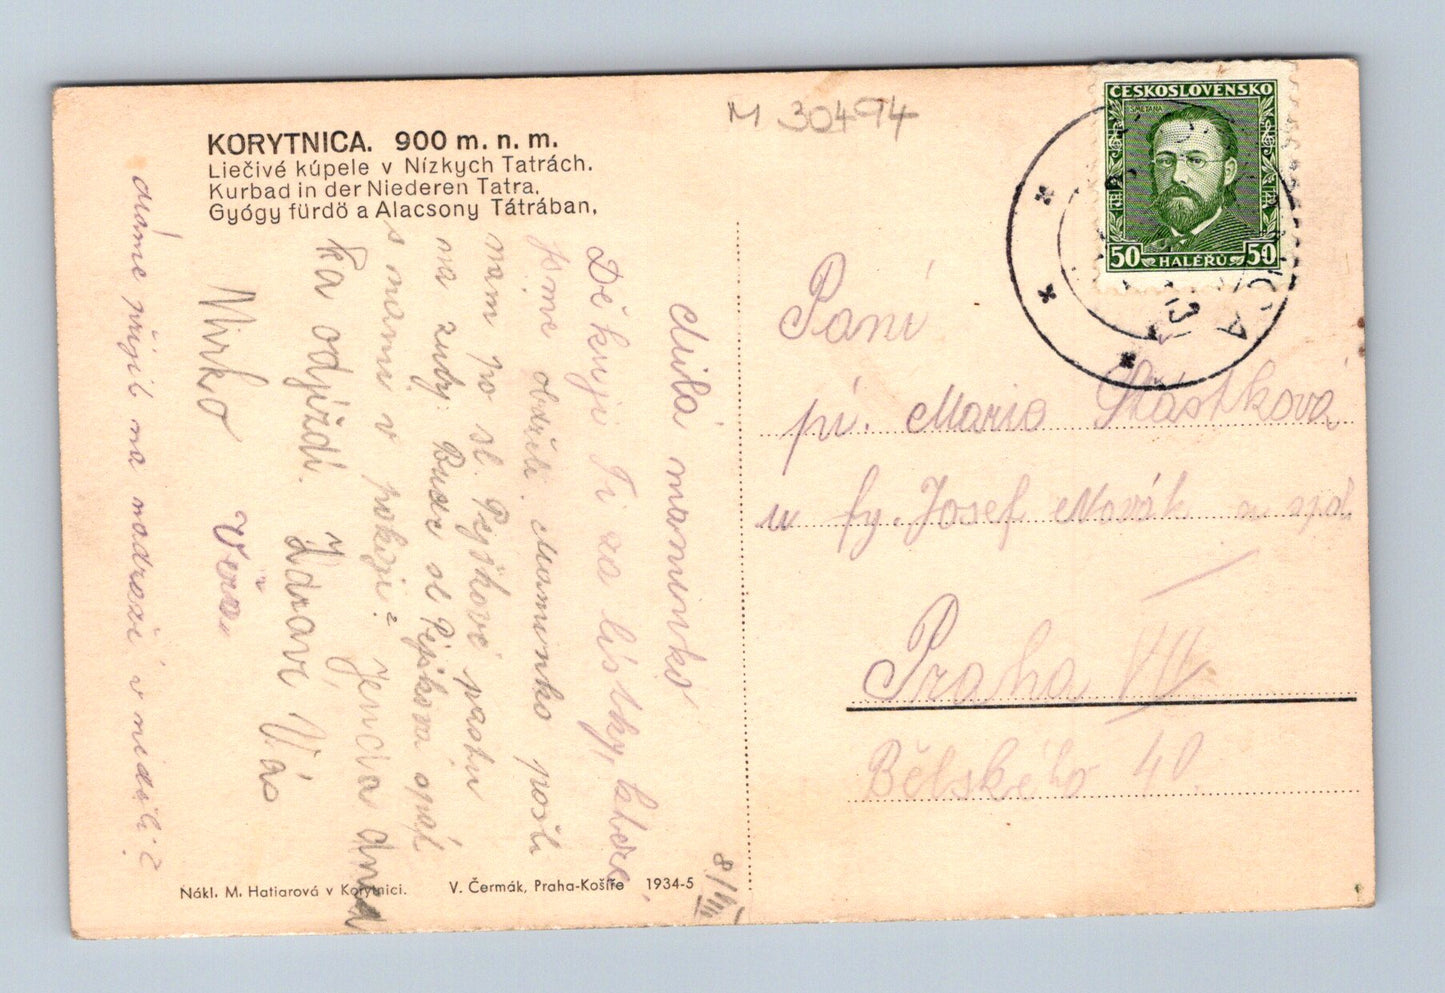 M 30494
KORYTNICA. 900 m. n. m.
Liečivé kúpele v Nízkych Tatrách.
Kurbad in der Niederen Tatra.
Gyógy fürdö a Alacsony Tátrában,
ČESKOSLOVENSKO
SMETANA
50 HALÉŘŮ 50
Milá maminko
Děkuji Ti za lístky, které
jsme obdrželi. Maminko pošli
nam po sl. Pejškové pastu
na zuby. Bude sl Pejškova spát
s nami v pokoji? Jenda dnes
ka odjíždí. Zdraví Vás
Mirko Věra
máme přijít na nadrazi v neděli?
8/VII
Paní
pí. Marie Šťástková
u fy. Josef Novák a spol.
Praha VII
Bělského 40.
Nákl. M. Hatiarová v Korytnici. V. Čermák, Praha-Košíře 1934-5